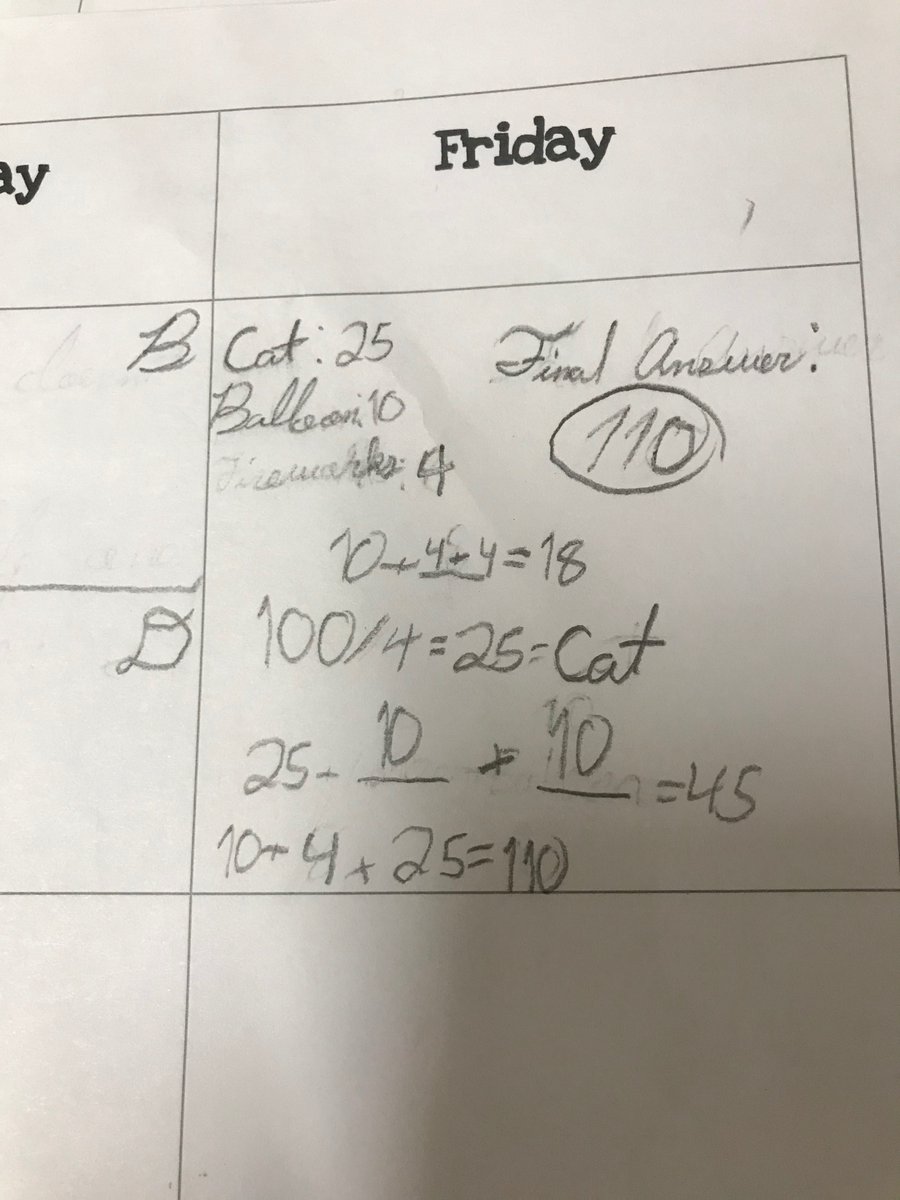 ay
Friday
B
Cat: 25
Final Answer:
Balloon: 10
110
Fireworks: 4
10+4+4=18
D
100/4=25=Cat
25+ 10 + 10 =45
10+4x25=110